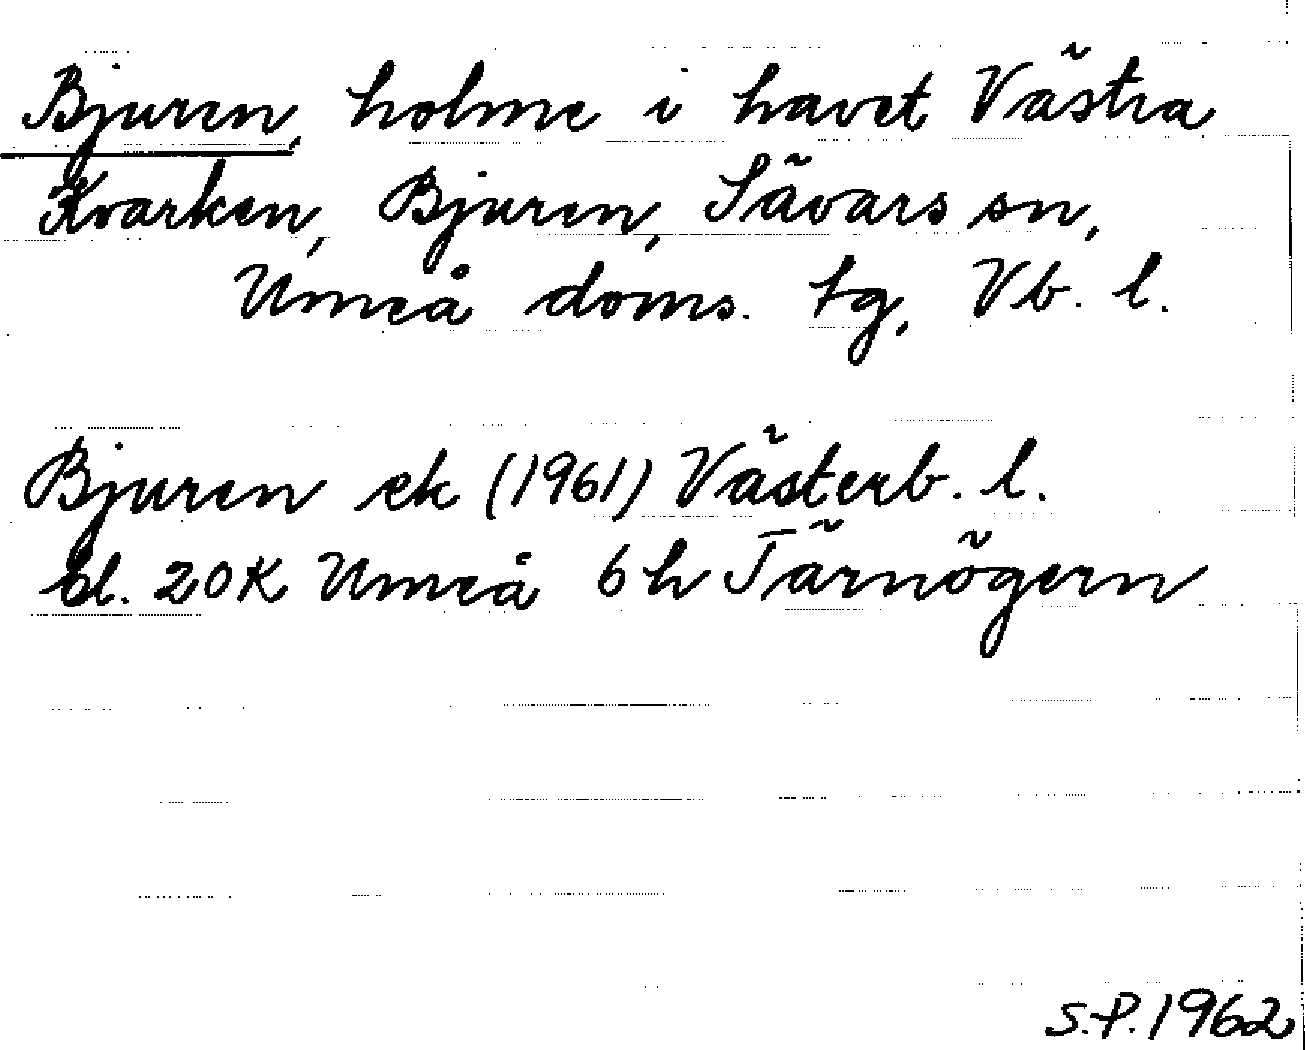 Bjuren, holme i havet Västra
Kvarken, Bjuren, Sävars sn,
Umeå doms. tg, Vb. l.
Bjuren ek (1961) Västerb. l.
bl. 20K Umeå 6h Tärnögern
S.P. 1962